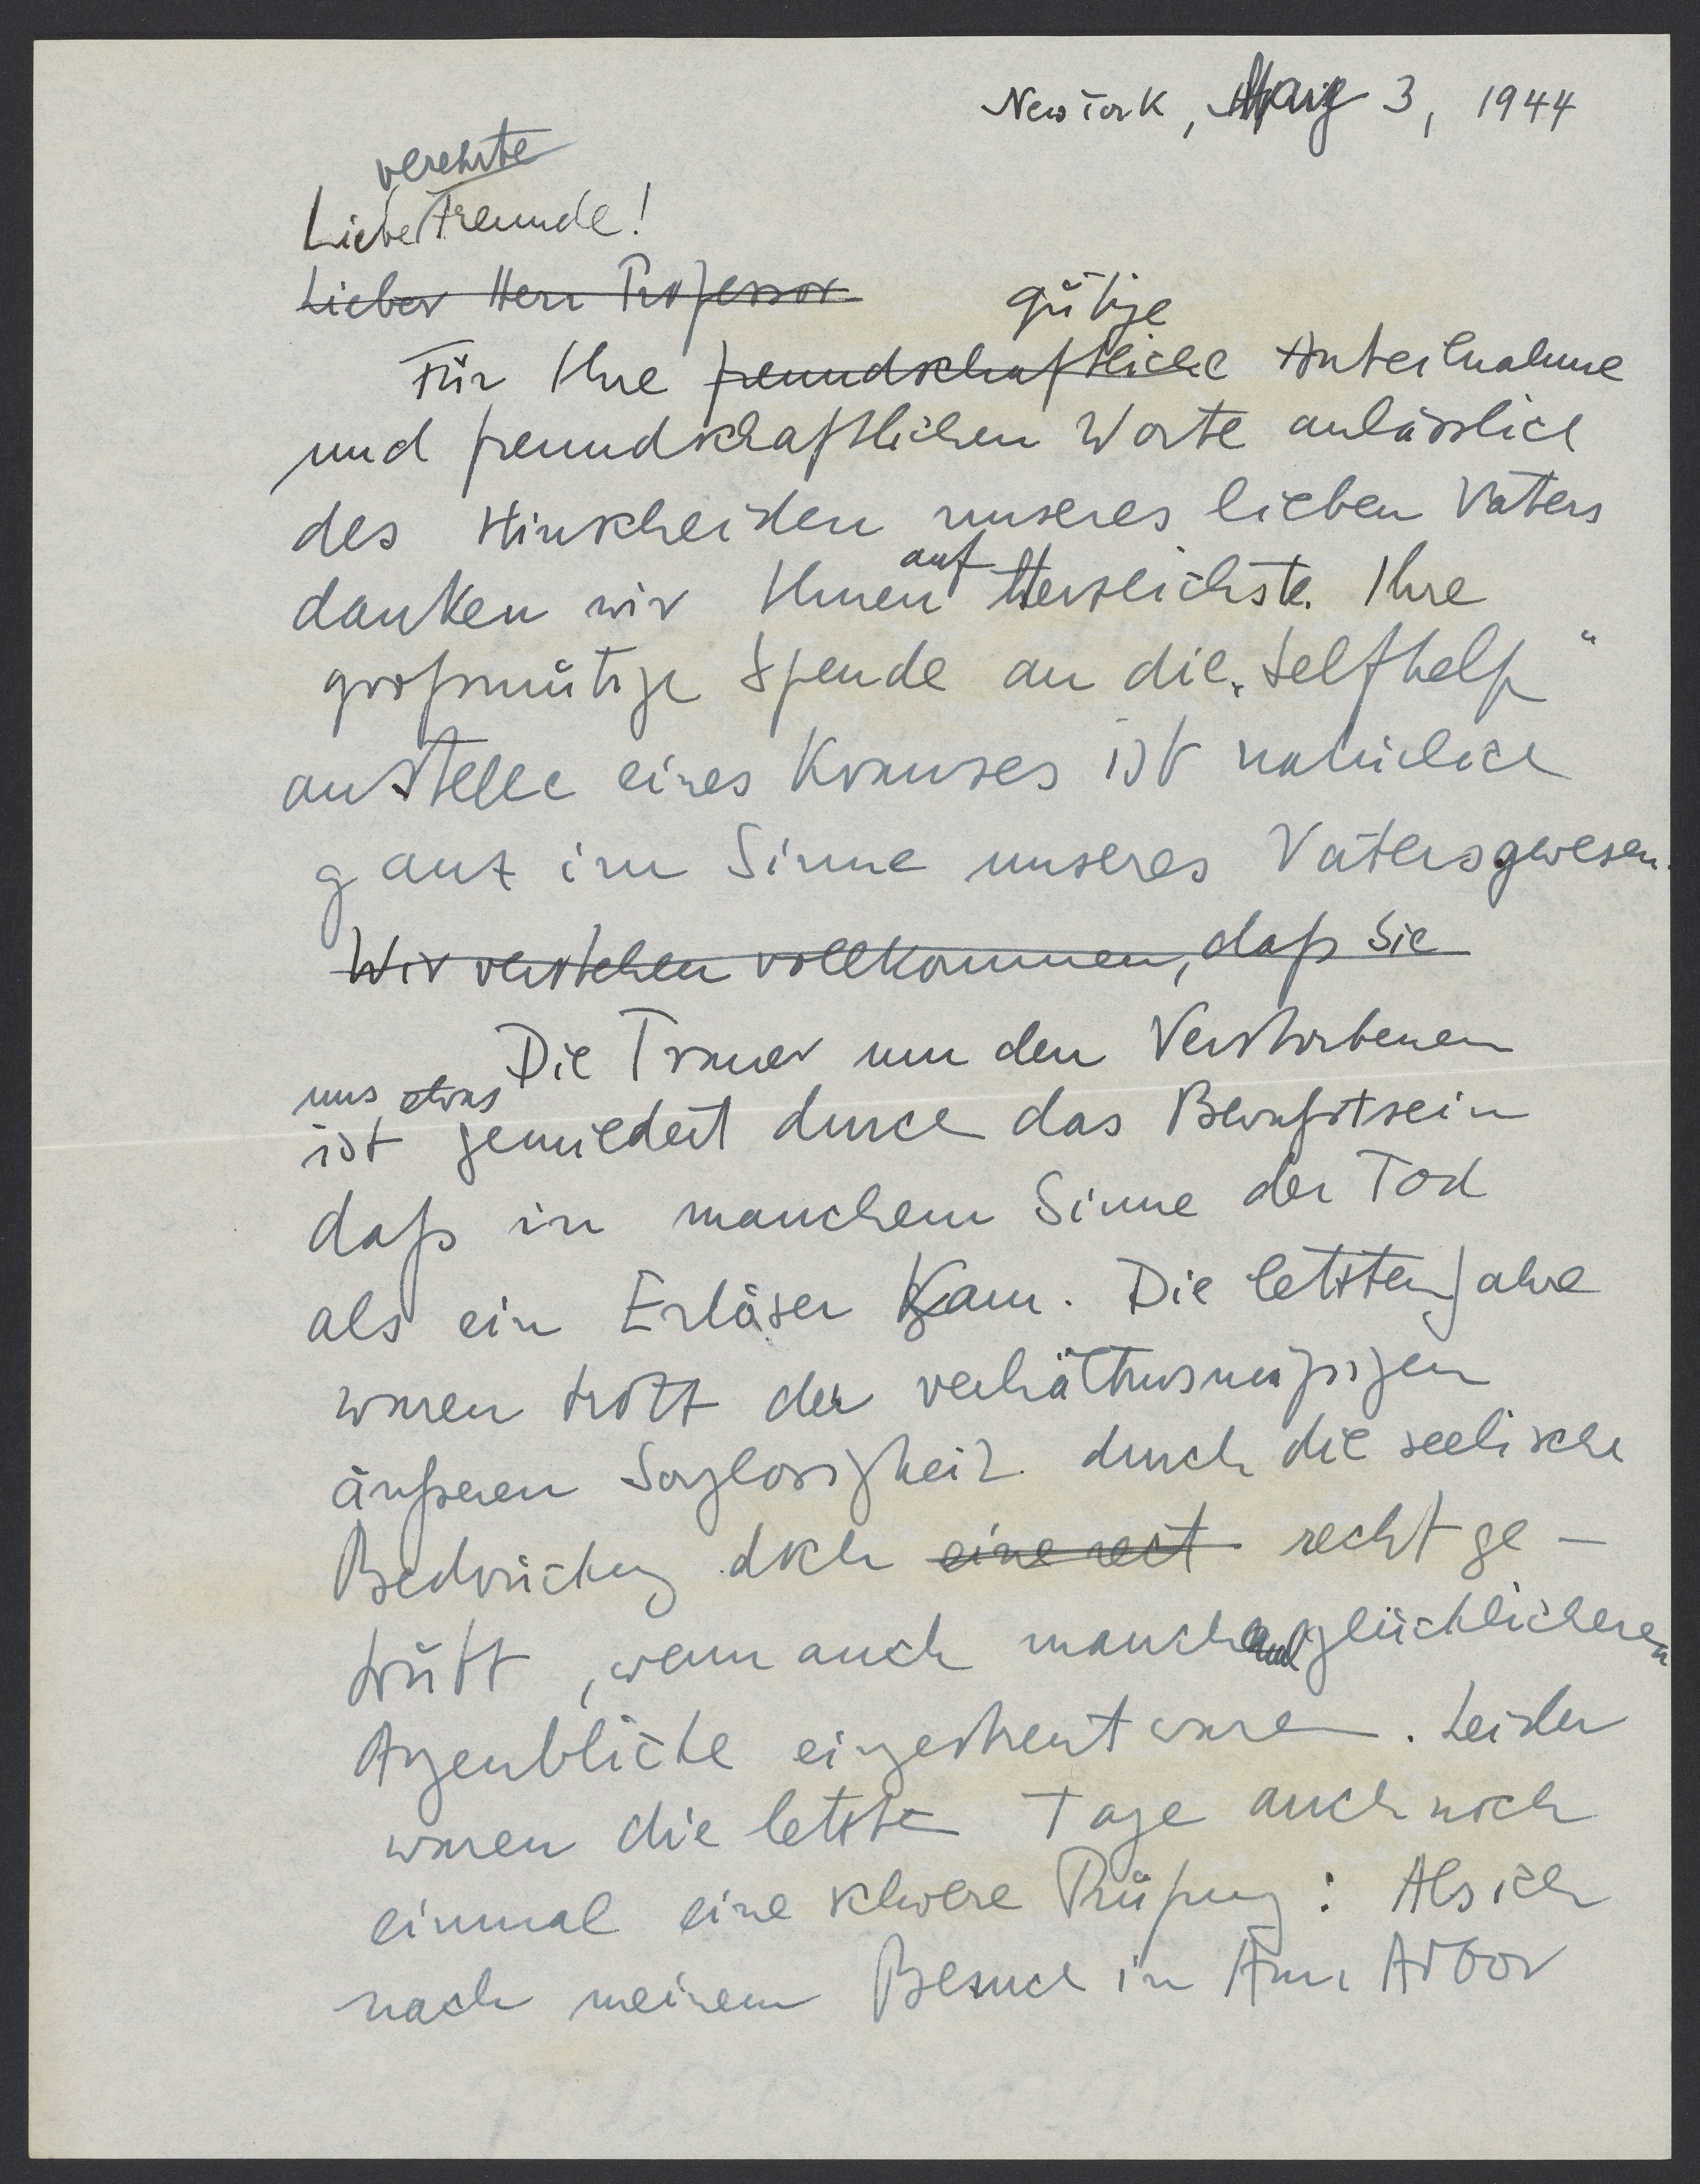 New York, May 3, 1944
verehrte
Liebe Freunde!
Lieber Herr Professor
gütige
Für Ihre freundschaftliche Anteilnahme
und freundschaftlichen Worte anlässlich
des Hinscheiden unseres lieben Vaters
auf
danken wir Ihnen Herzlichste. Ihre
großmütige Spende an die „Selfhelp“
anstelle eines Kranzes ist natürlich
ganz im Sinne unseres Vaters gewesen.
Wir verstehen vollkommen, daß Sie
Die Trauer um den Verstorbenen
uns etwas
ist gemildert durch das Bewußtsein
daß in manchem Sinne der Tod
als ein Erlöser kam. Die letzten Jahre
waren trotz der verhältnismäßigen
äußeren Sorglosigkeit durch die seelische
Bedrückung doch eine recht recht ge-
trübt, wenn auch manche glücklicheren
Augenblicke eingestreut waren. Leider
waren die letzten Tage auch noch
einmal eine schwere Prüfung: Als ich
nach meinem Besuch in Ann Arbor